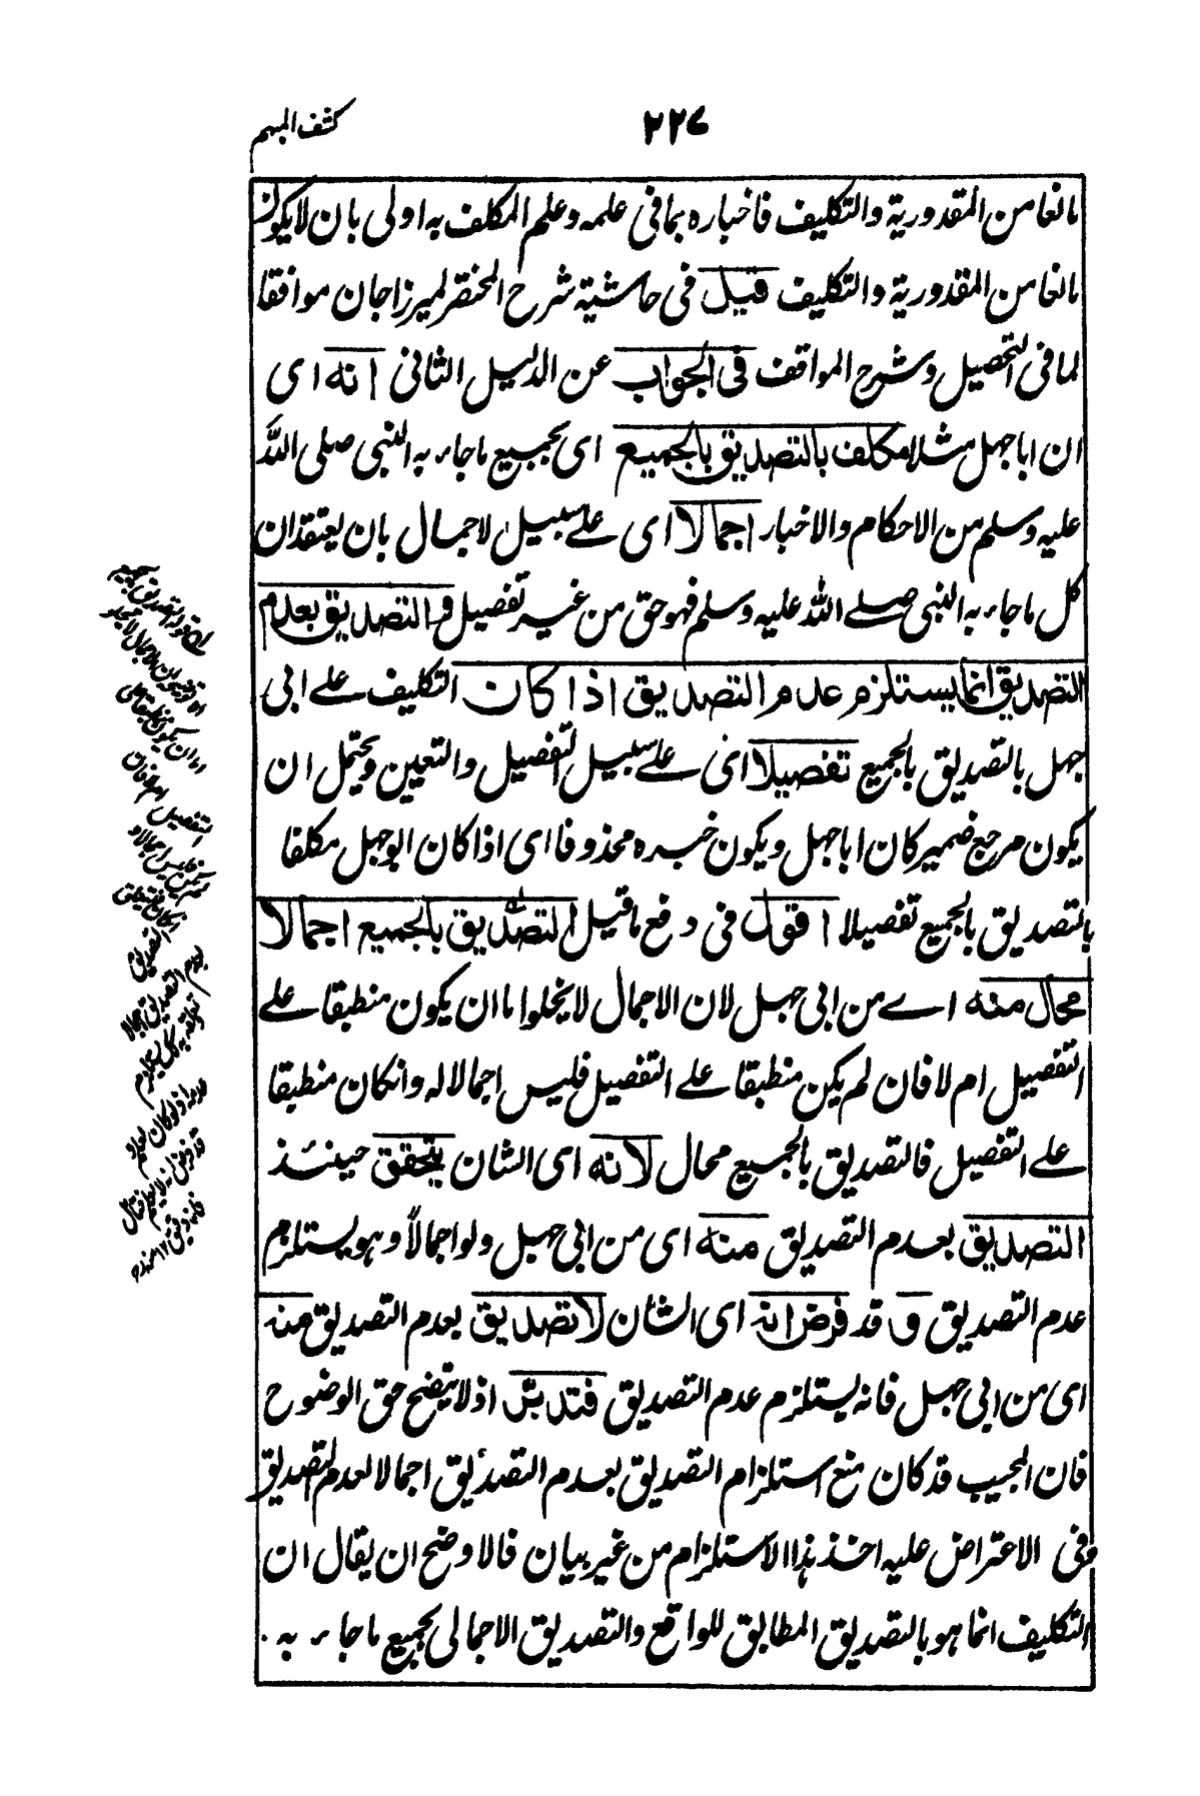 كشف المبهم
٢٢٧
مانعا من المقدورية والتكليف فاخباره بما فى علمه وعلم المكلف به اولى بان لا يكون
مانعا من المقدورية والتكليف قيل فى حاشية شرح المختصر لميرزا جان موافقا
لما فى التحصيل وشرح المواقف فى الجواب عن الدليل الثانى انه اى
ان ابا جهل مثلا مكلف بالتصديق بالجميع اى بجميع ما جاء به النبى صلى الله
عليه وسلم من الاحكام والاخبار اجمالا اى على سبيل الاجمال بان يعتقد ان
كل ما جاء به النبى صلے الله عليه وسلم فهو حق من غير تفصيل و التصديق بعدم
التصديق انما يستلزم عدم التصديق اذا كان التكليف على ابى
جهل بالتصديق بالجميع تفصيلا اى على سبيل التفصيل والتعيين ويحتمل ان
يكون مرجع ضمير كان ابا جهل ويكون خبره محذوفا اى اذا كان ابو جهل مكلفا
بالتصديق بالجميع تفصيلا اقول فى دفع ما قيل التصديق بالجميع اجمالا
محال منه اے من ابى جهل لان الاجمال لا يخلوا ما ان يكون منطبقا على
التفصيل ام لا فان لم يكن منطبقا على التفصيل فليس اجمالا له وانكان منطبقا
على التفصيل فالتصديق بالجميع محال لانه اى الشان يتحقق حينئذ
التصديق بعدم التصديق منه اى من ابى جهل ولو اجمالاً وهو يستلزم
عدم التصديق و قد فرض انه اى الشان لا تصديق بعدم التصديق منه
اى من ابى جهل فانه يستلزم عدم التصديق فتدبر اذ لا يتضح حق الوضوح
فان المجيب قد كان منع استلزام التصديق بعدم التصديق اجمالا لعدم التصديق
وفى الاعتراض عليه اخذ هذا الاستلزام من غير بيان فالاوضح ان يقال ان
التكليف انما هو بالتصديق المطابق للواقع والتصديق الاجمالى بجميع ما جاء به